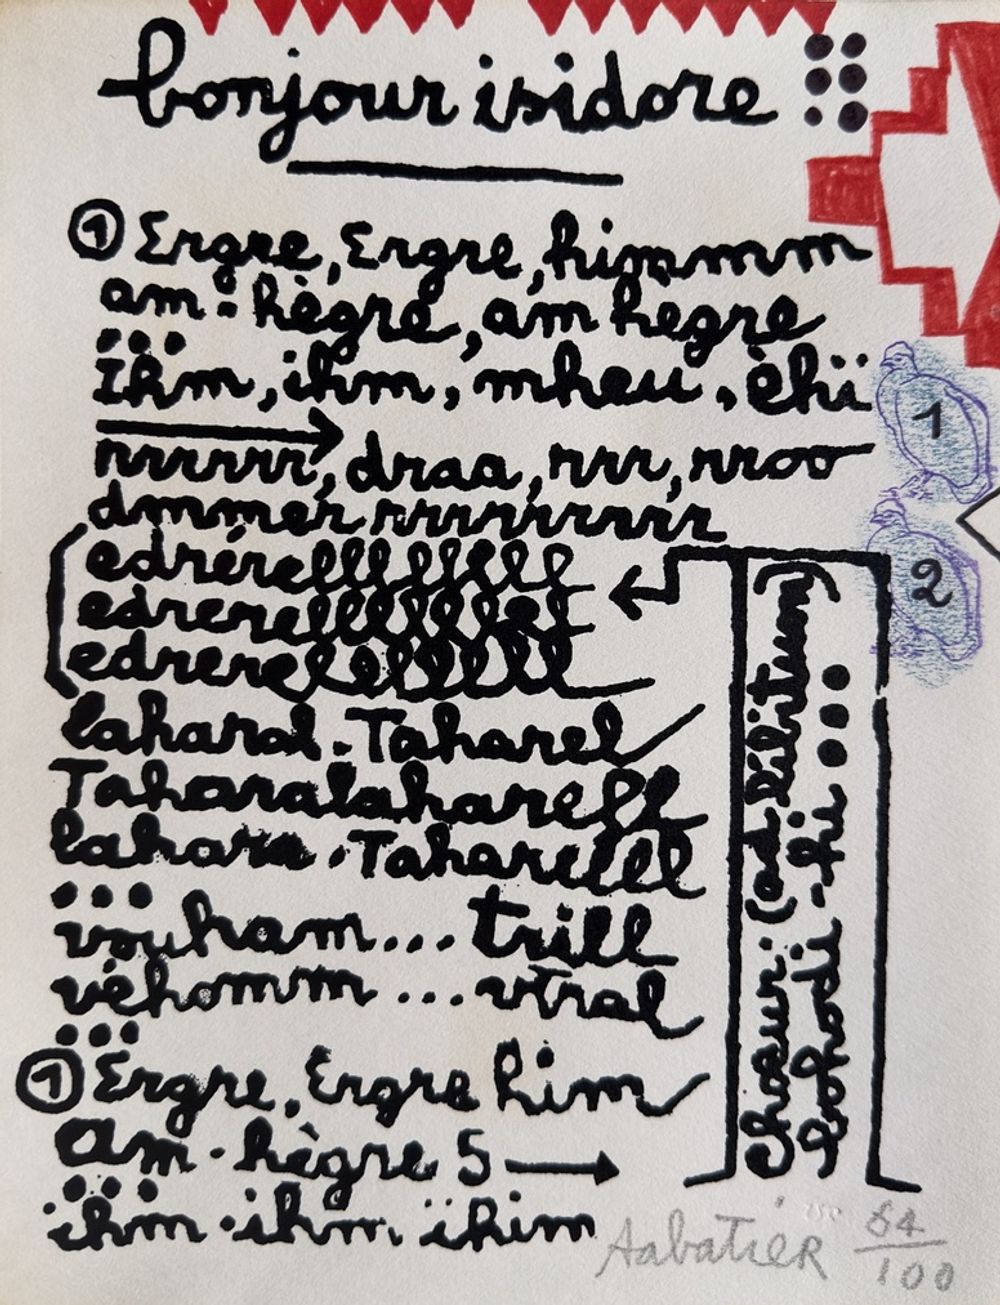 bonjour isidore
① Ergre, Ergre, himmmm
am - hègre, am hegre
...
ihm, ihm, mheu, èhï
rrrrrr, draa, rrr, rroo
dmmer rrrrrrrrrr
edrérellllllll
edrerellllllll
edrerellllllll
laharal - Taharel
Taharalaharell
lahara - Taharellll
...
vouham... trill
véhomm... vtral
...
① Ergre, Ergre him
am - hègre 5
...
ihm - ihm ïhim
Chœur: (ad libitum)
hohodi - hi ...
1
2
Sabatier 64/100